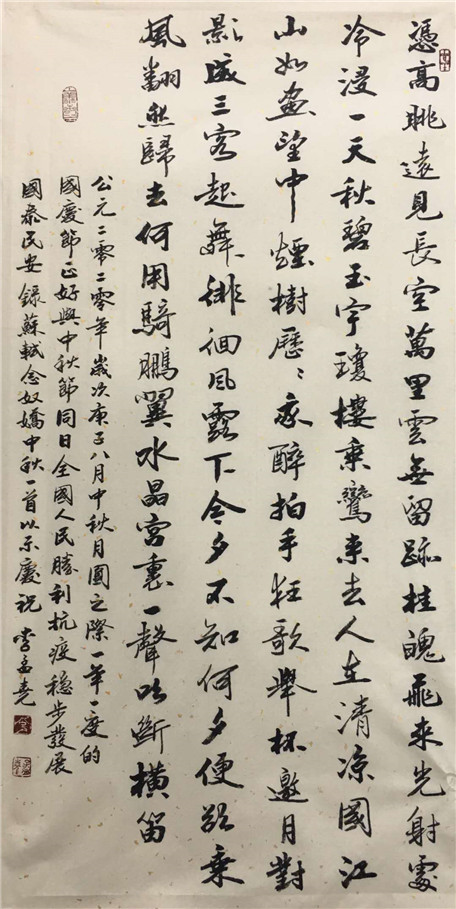 憑高眺遠見長空萬里雲無留跡桂魄飛來光射處
冷浸一天秋碧玉宇瓊樓乘鸞來去人在清凉國江
山如畫望中煙樹歷々我醉拍手狂歌舉杯邀月對
影成三客起舞徘徊風露下今夕不知何夕便欲乘
風翻然歸去何用騎鵬翼水晶宮裏一聲吹斷橫笛
公元二零二零年歲次庚子八月中秋月圓之際一年一度的
國慶節正好與中秋節同日全國人民勝利抗疫穩步發展
國泰民安錄蘇軾念奴嬌中秋一首以示慶祝 李孟堯